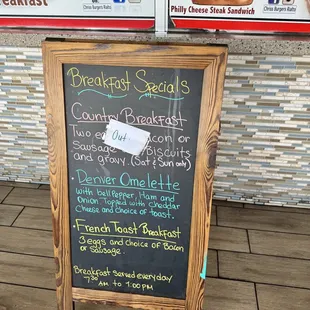 Breakfast
Philly Cheese Steak Sandwich
Breakfast Specials
Country Breakfast
Two Bacon or
Out
Sausage Biscuits
and gravy (Sat & Sun only)
· Denver Omelette
with bell Pepper, Ham and
Onion Topped with cheddar
Cheese and Choice of toast.
· French Toast Breakfast
3 eggs and choice of Bacon
or Sausage.
Breakfast served everyday
7:30 AM to 1:00PM